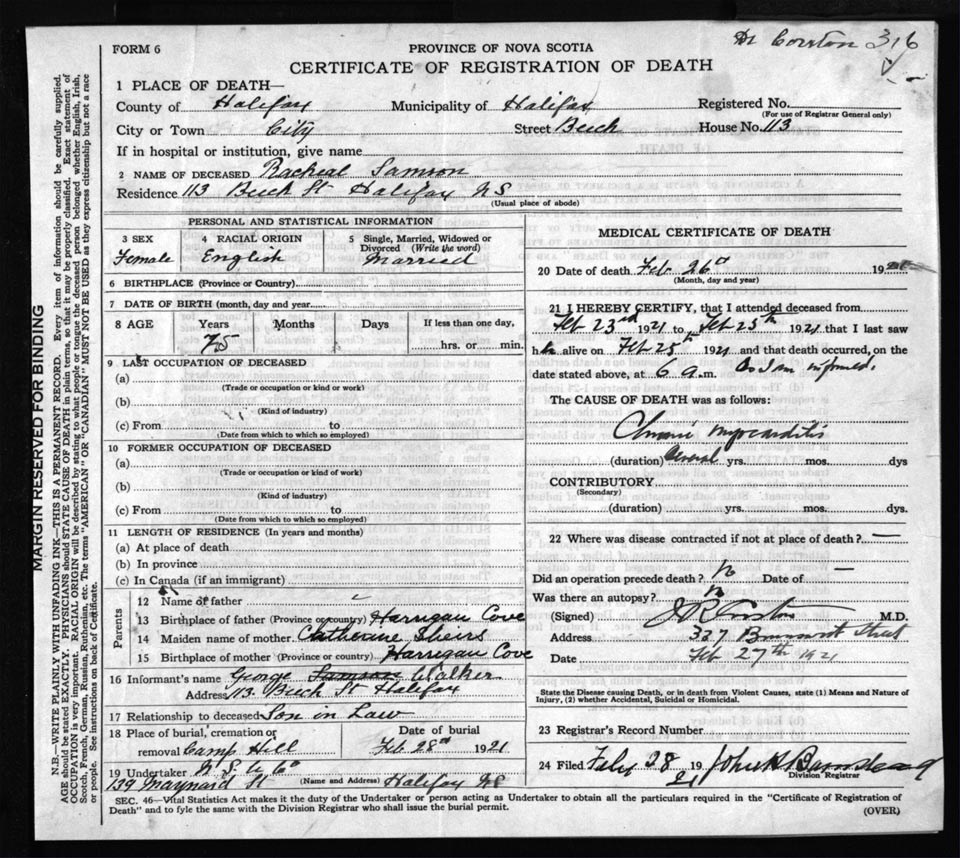 Dr Coxton 316
FORM 6
PROVINCE OF NOVA SCOTIA
CERTIFICATE OF REGISTRATION OF DEATH
MARGIN RESERVED FOR BINDING
N.B.—WRITE PLAINLY WITH UNFADING INK—THIS IS A PERMANENT RECORD. Every item of information should be carefully supplied.
AGE should be stated EXACTLY. PHYSICIANS should STATE CAUSE OF DEATH in plain terms, so that it may be properly classified. Exact statement of
OCCUPATION is very important. RACIAL ORIGIN will be described by stating to what people or tongue the deceased person belonged whether English, Irish,
Scotch, French, German, Russian, Ruthenian, etc. The terms "AMERICAN" OR "CANADIAN" MUST NOT BE USED as they express citizenship but not a race
or people. See instructions on back of Certificate.
1 PLACE OF DEATH—
County of Halifax Municipality of Halifax Registered No.
(For use of Registrar General only)
City or Town City Street Beech House No. 113
If in hospital or institution, give name
2 NAME OF DECEASED Racheal Samson
Residence 113 Beech St Halifax N S
(Usual place of abode)
PERSONAL AND STATISTICAL INFORMATION
3 SEX 4 RACIAL ORIGIN 5 Single, Married, Widowed or
Divorced (Write the word)
Female English Married
6 BIRTHPLACE (Province or Country)
7 DATE OF BIRTH (month, day and year)
8 AGE Years Months Days If less than one day,
75 hrs. or min.
9 LAST OCCUPATION OF DECEASED
(a)
(Trade or occupation or kind of work)
(b)
(Kind of industry)
(c) From to
(Date from which to which so employed)
10 FORMER OCCUPATION OF DECEASED
(a)
(Trade or occupation or kind of work)
(b)
(Kind of industry)
(c) From to
(Date from which to which so employed)
11 LENGTH OF RESIDENCE (In years and months)
(a) At place of death
(b) In province
(c) In Canada (if an immigrant)
Parents
12 Name of father
13 Birthplace of father (Province or country) Harrigan Cove
14 Maiden name of mother Catherine
15 Birthplace of mother (Province or country) Harrigan Cove
16 Informant's name George Walker
Address 113 Beech St Halifax
17 Relationship to deceased Son in Law
18 Place of burial, cremation or Date of burial
removal Camp Hill Feb 28th 1921
19 Undertaker N. S. U. Co
139 Maynard St (Name and Address) Halifax NS
MEDICAL CERTIFICATE OF DEATH
20 Date of death Feb 26th 192
(Month, day and year)
21 I HEREBY CERTIFY, that I attended deceased from
Feb 23rd 1921 to Feb 25th 1921 that I last saw
her alive on Feb 25th 1921 and that death occurred, on the
date stated above, at 6 a.m. As I am informed.
The CAUSE OF DEATH was as follows:
Chronic myocarditis
(duration) several yrs. mos. dys
CONTRIBUTORY
(Secondary)
(duration) yrs. mos. dys.
22 Where was disease contracted if not at place of death? —
Did an operation precede death? No Date of —
Was there an autopsy? No
(Signed) M.D.
Address 327 Street
Date Feb 27th 1921
State the Disease causing Death, or in death from Violent Causes, state (1) Means and Nature of
Injury, (2) whether Accidental, Suicidal or Homicidal.
23 Registrar's Record Number
24 Filed Feby 28 19 21 John
Division Registrar
SEC. 46—Vital Statistics Act makes it the duty of the Undertaker or person acting as Undertaker to obtain all the particulars required in the "Certificate of Registration of
Death" and to fyle the same with the Division Registrar who shall issue the burial permit.
(OVER)